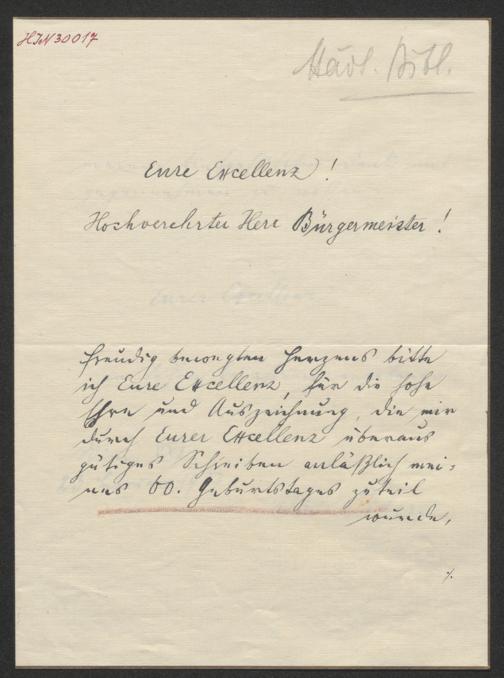 HIN 30017
Städt. Bibl.
Eure Excellenz!
Hochverehrter Herr Bürgermeister!
Freudig bewegten Herzens bitte
ich Eure Excellenz, für die hohe
Ehre und Auszeichnung, die mir
durch Eurer Excellenz überaus
gütiges Schreiben anläßlich mei-
nes 60. Geburtstages zuteil
wurde,
./.